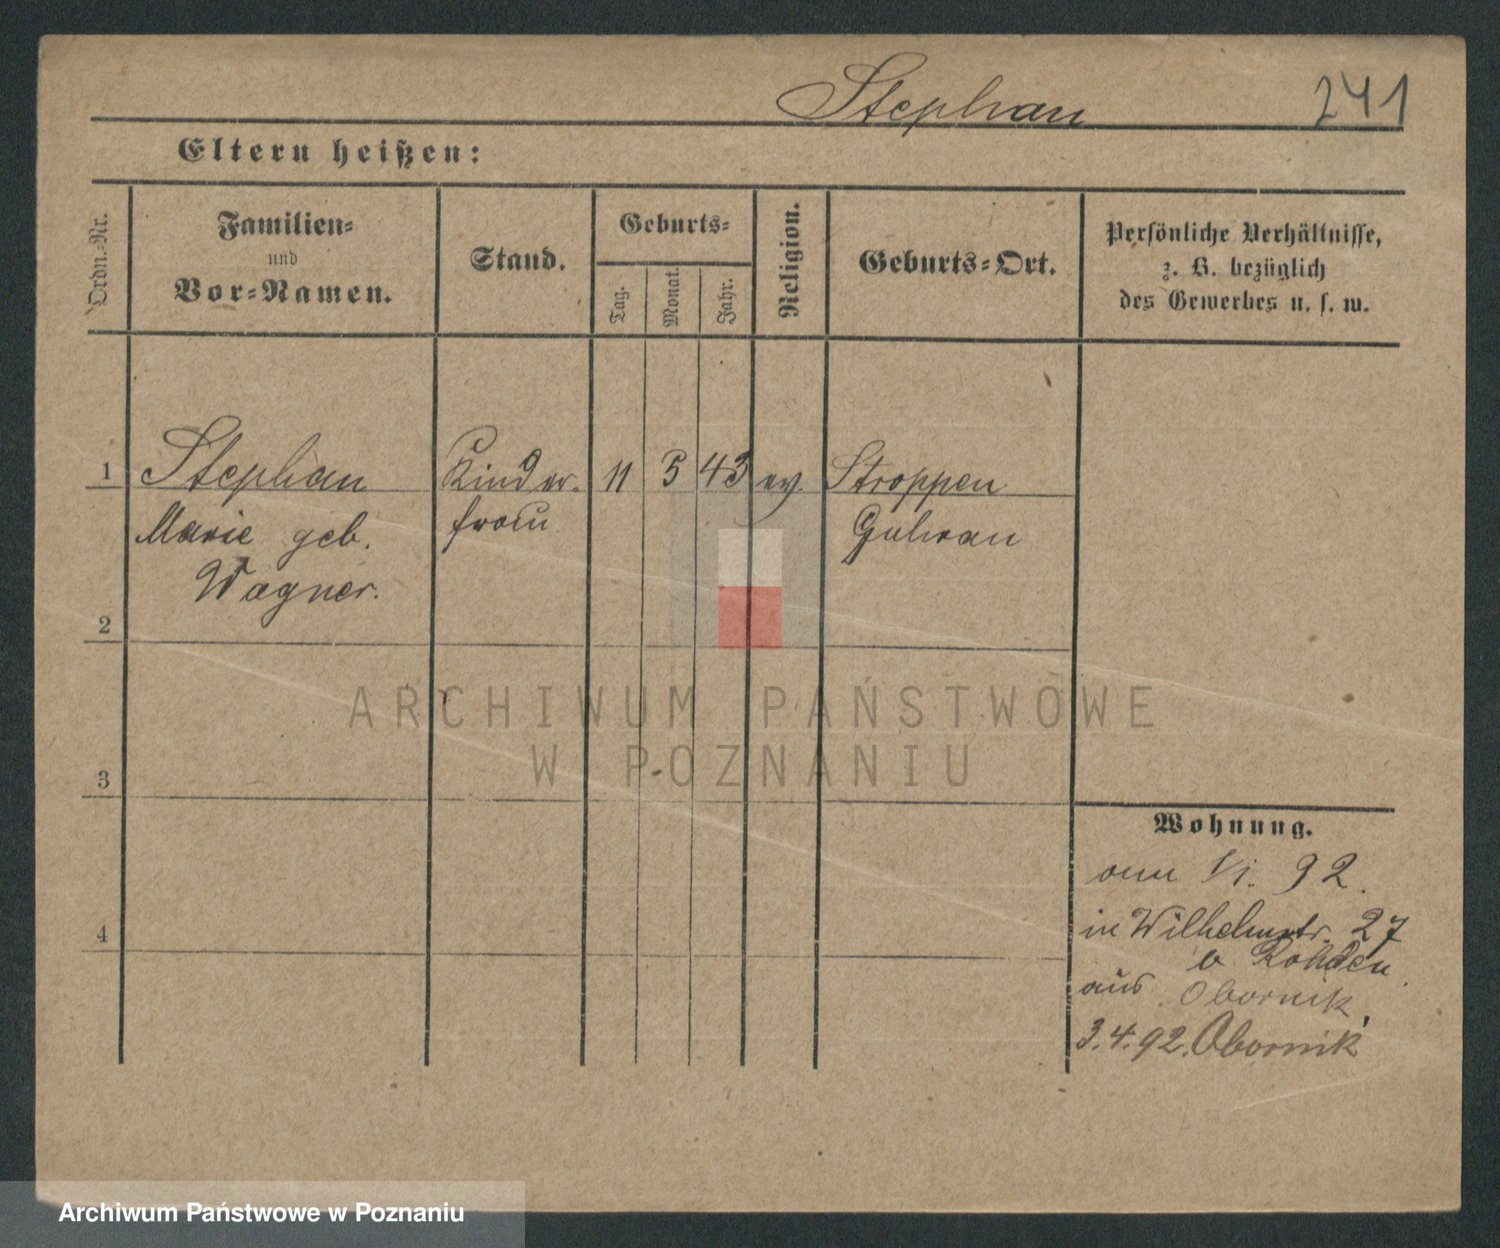 Stephan 241
Eltern heißen:
Ordn.-Nr.
Familien-
und
Vor-Namen.
Stand.
Geburts-
Tag.
Monat.
Jahr.
Religion.
Geburts-Ort.
Persönliche Verhältnisse,
z. B. bezüglich
des Gewerbes u. s. w.
1 Stephan Kinder- 11 5 43 ev. Stroppen
Marie geb. frau Guhrau
Wagner.
2
3
4
Wohnung.
92.
in Wilhelmstr. 27
b Rohden
aus Obornik,
3.4.92. Obornik
ARCHIWUM PAŃSTWOWE
W POZNANIU
Archiwum Państwowe w Poznaniu